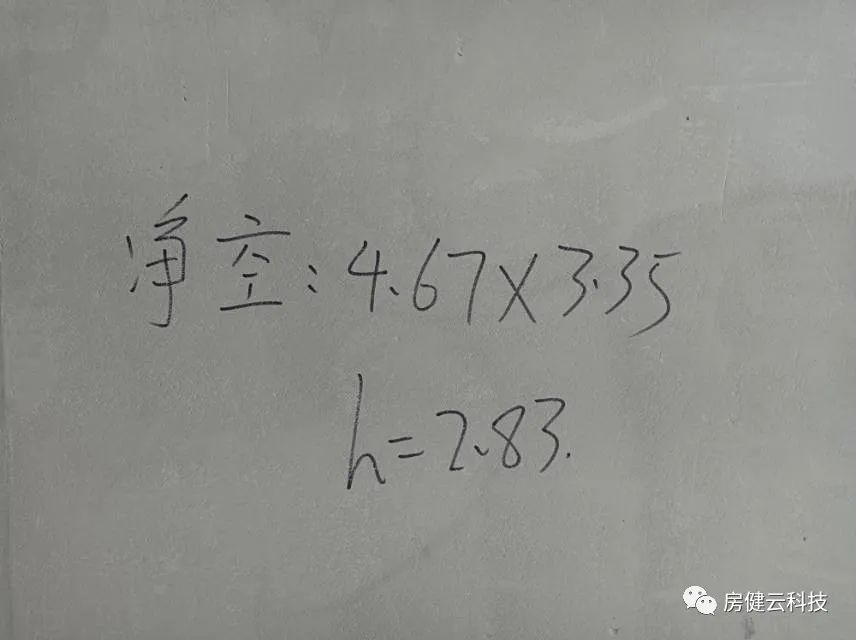 净空：4.67×3.35
h=2.83.
房健云科技